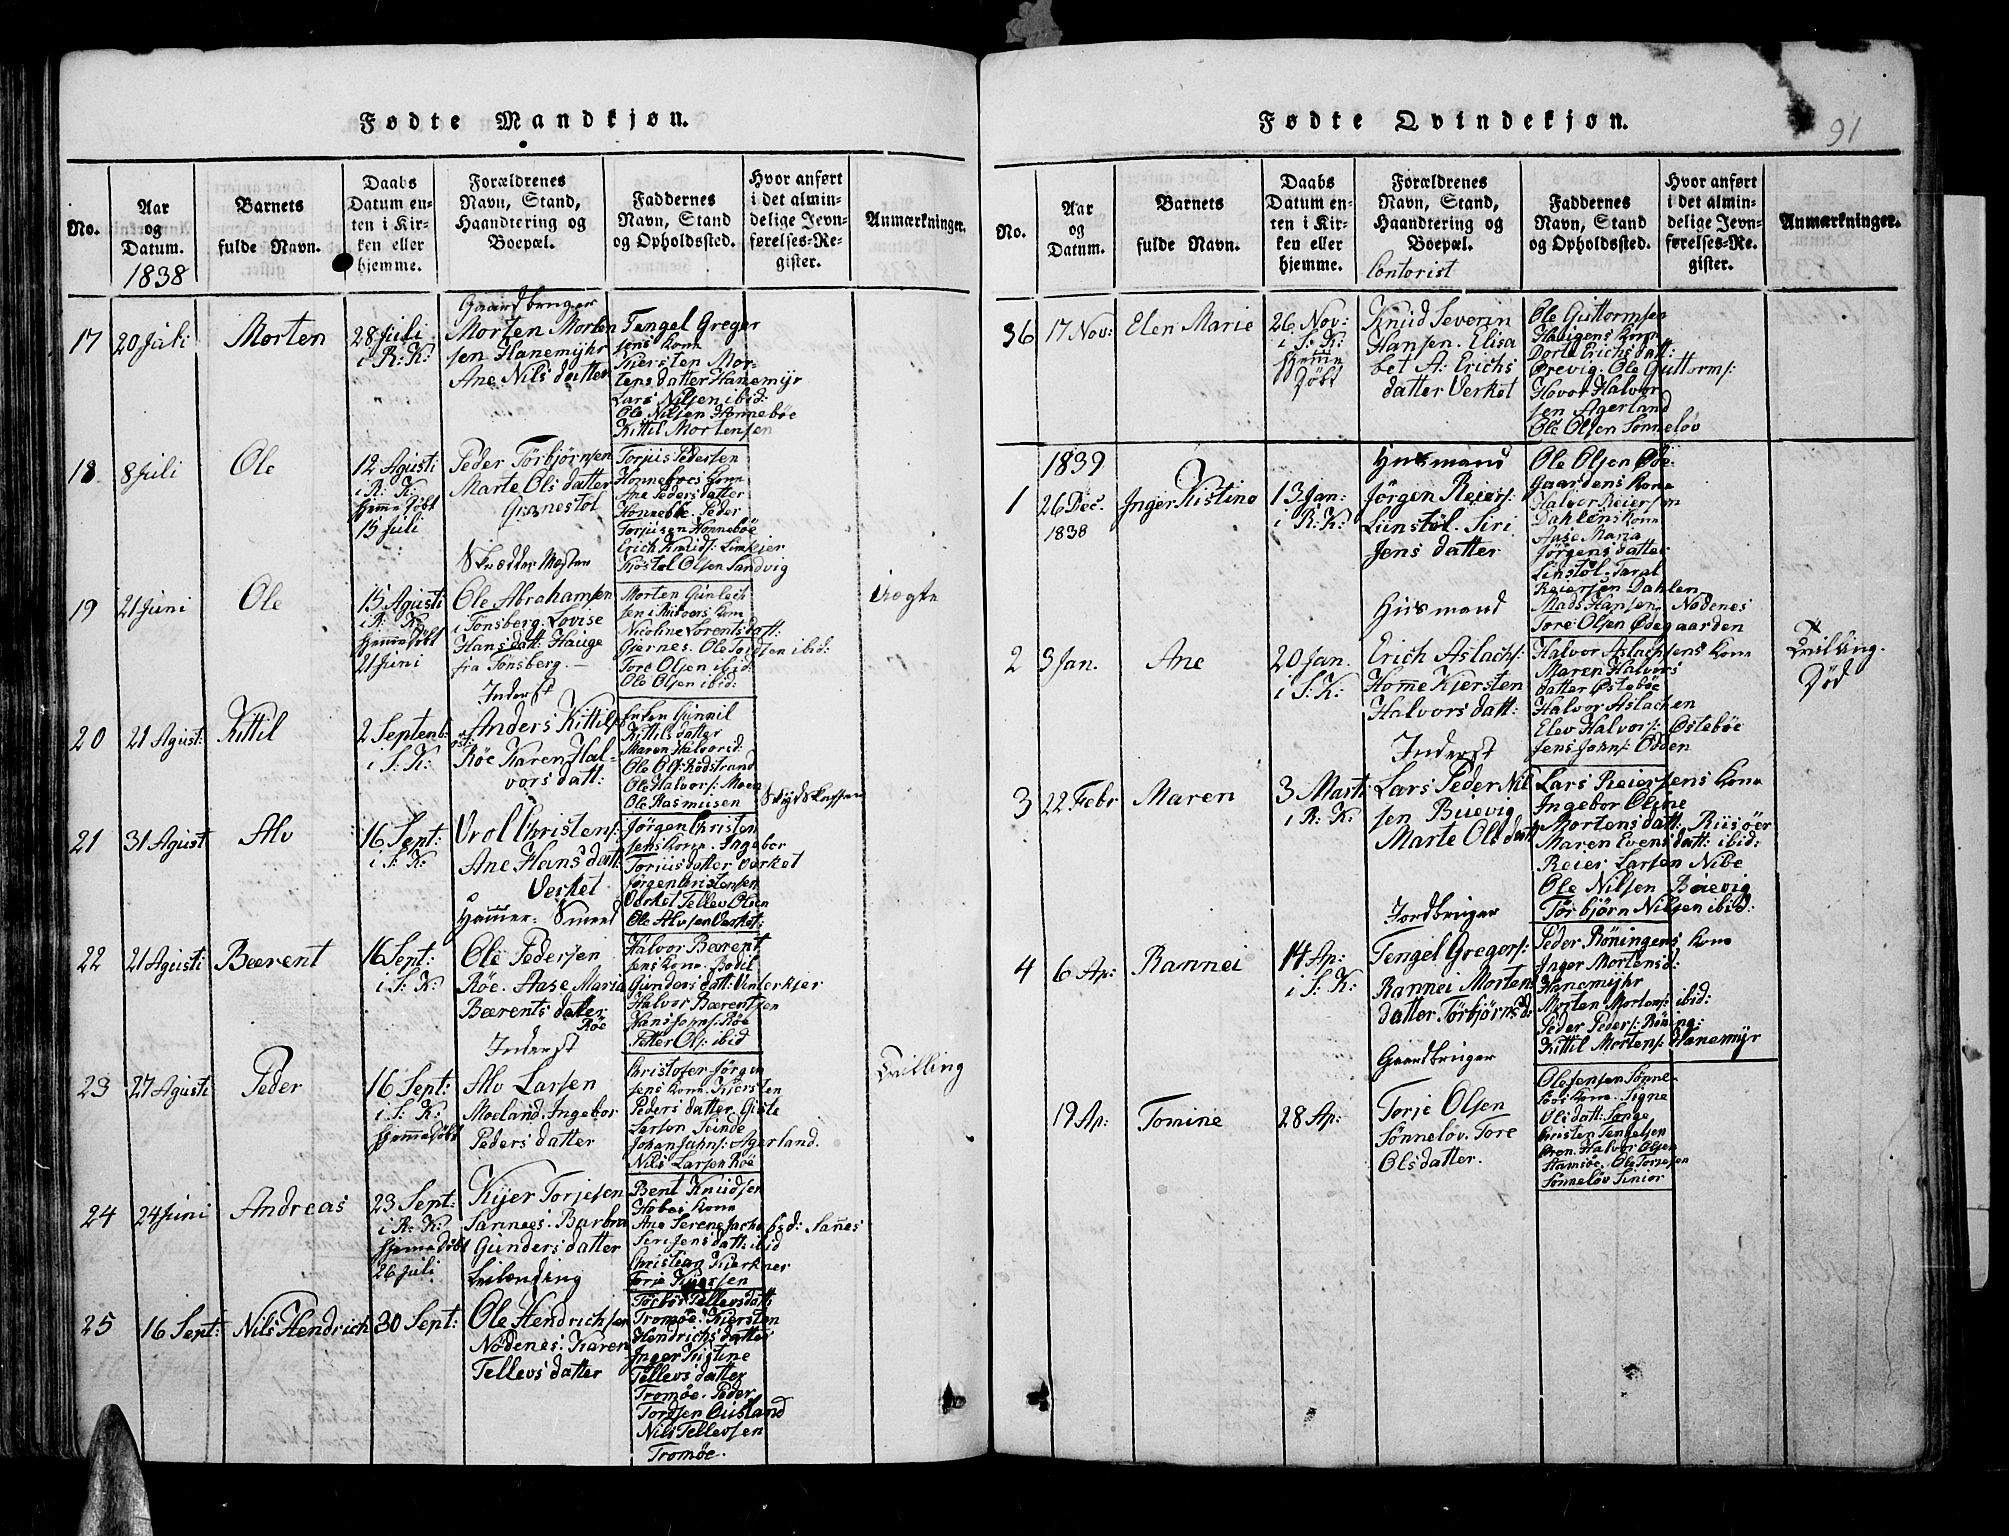 Fødte Mandkjøn.
No.
Aar
og
Datum.
1838
Barnets
fulde Navn.
Daabs
Datum en-
ten i Kir-
ken eller
hjemme.
Forældrenes
Navn, Stand,
Haandtering og
Boepæl.
Faddernes
Navn, Stand
og Opholdssted.
Hvor anført
i det almin-
delige Jevn-
førelses-Re-
gister.
Anmærkninger.
17
20 Juli
Morten
28 Juli
i R: K:
Gaardbruger
Morten Morten
sen Hanemyhr
Ane Nilsdatter
Tengel Greger
sens Kone
Kiersten Mor-
tensdatter Hanemyr
Lars Nilsen ibid:
Ole Nilsen Honnebøe
Kittil Mortensen
18
8 Juli
Ole
12 Agusti
i R: K:
Hjemedøbt
15 Juli
Peder Torbjørnsen
Marte Olsdatter
Granestøl
Torjus Pedersen
Honneboes Kone
Ane Pedersdatter
Honneboe. Peder
Torjusen Honnebøe
Erich Knuds: Limkjer
Kjøstel Olsen Sandvig
19
21 Juni
Ole
15 Agusti
i R: K:
Hjemedøbt
21 Juni
Skrædder Mester
Ole Abrahamsen
i Tønsberg. Lovise
Hansdatt: Hauge
fra Tønsberg.
Morten Gunlech
sen i Risørs Kone
Nicoline Lorentsdatt:
Gjernes. Ole Tordsen ibid:
Tore Olsen ibid:
Ole Olsen ibid:
Uægte
20
21 Agust:
Kittil
2 Septenb:
i S: K:
Inderst
Anders Kittils:
Røe Karen Hal-
vorsdatt:
Enken Gunnil
Kittilsdatter
Maren Halvorsd:
Ole Ols: Rødstrand
Ole Halvors: Moen
Ole Rasmusen
21
31 Agust
Alv
16 Sept:
i S: K:
Vrol Christens:
Ane Hansdatt:
Verket
Jørgen Christen
sens Kone. Ingebor
Torjusdatter Verket
Jørgen Christensen
Verket Tellev Olsen
Ole Alvsen Verket:
Skydskassen
22
21 Agusti
Beerent
16 Sept:
i S: K:
Hammer-Smed
Ole Pedersen
Røe. Aase Maria
Beerentsdatter
Røe
Halvor Beerent
sens Kone. Bodil
Gundersdatt: Vinterkjer
Halvor Beerentsen
Hans Jahns: Røe
Petter Ols: ibid
23
27 Agusti
Peder
16 Sept:
i S: K:
Hjemmedøbt
Inderst
Alv Larsen
Moeland. Ingebor
Pedersdatter
Christofer Jørgen
sens Kone Kiersten
Pedersdatter Giste
Larsen Svinde
Johan Jahns: Agerland.
Nils Larsen Røe
Tvilling
24
24 Juni
Andreas
23 Sept:
i R: K:
Hjemedøbt
26 Juli
Kjer Torjesen
Sannes. Barbra
Gundersdatter
Bent Knudsen
Hobes Kone
Ane Serene Jachobsd: Sannes
Seri Jensdatt: ibid
Christian Kierkner
Torje Kjersen
25
16 Sept:
Nils Hendrich
30 Sept:
Leilænding
Ole Hendrichsen
Nødenes. Karen
Tellevsdatter
Torbor Tellevsdatt:
Tromøe. Kiersten
Hendrichsdatter
Inger Kistine
Tellevsdatter
Tromøe. Peder
Tordsen Ousland
Nils Tellevsen
Tromøe.
Fødte Qvindekjøn.
91
No.
Aar
og
Datum.
Barnets
fulde Navn.
Daabs
Datum en-
ten i Kir-
ken eller
hjemme.
Forældrenes
Navn, Stand,
Haandtering og
Boepæl.
Faddernes
Navn, Stand
og Opholdssted.
Hvor anført
i det almin-
delige Jevn-
førelses-Re-
gister.
Anmærkninger.
36
17 Nov:
Elen Marie
26 Nov:
i S: K:
Hjeme
Døbt
Contorist
Knud Severin
Hansen. Elisa
bet A: Erichs
datter Verket
Ole Guttormsen
Haugens Kone
Dorte Erichsdatt:
Ørevig. Ole Guttorms:
Hovor Halvor
sen Agerland
Ole Olsen Sønneløv
1839
1
26 Dec.
1838
Inger Kistine
13 Jan:
i R: K:
Husmand
Jørgen Reiers:
Linstøl. Siri
Jensdatter
Ole Olsen Øde
Gaardens Kone
Halvor Reiersen
Dahlens Kone
Aase Maria
Jørgensdatter
Linstøl. Taral
Reiersen Dahlen
Mads Hansen Nødenes
Tore Olsen Ødegaarden
2
9 Jan.
Ane
20 Jan.
i S: K:
Husmand
Erich Aslachs:
Homme Kjersten
Halvorsdatt:
Halvor Aslachsens Kone
Maren Halvors
datter Østebøe
Halvor Aslacken
Elev Halvors: Østebøe
Jens Jahns: Odden
Tvilling.
Død
3
22 Febr
Maren
3 Marti
i R: K:
Inderst
Lars Peder Nil
sen Buevig
Marte Olsdatt
Lars Reiersens Kone
Ingebor Oline
Mortensdatt: Riisøer
Maren Evensdatt: ibid:
Reier Larsen Nibe
Ole Nilsen Boievig
Torbjørn Nilsen ibid:
4
6 Ap:
Rannei
14 Ap:
i S: K:
Jordbruger
Tengel Gregors:
Rannei Morten
datter Torbjørnsd:
Peder Røningens Kone
Inger Mortensd:
Hanemyhr
Morten Mortens: ibid:
Peder Peders: Røning:
Kittil Mortens: Hanemyr
19 Ap:
Tomine
28 Ap:
Gaardbruger
Torje Olsen
Sønneløv. Tore
Olsdatter.
Ole Jensen Sønne-
løvs Kone. Signe
Olsdatt: Songe
Christen Tengelsen
Øren. Halvor Olsen
Stamsøe. Ole Torjesen
Sønneløv Sinior